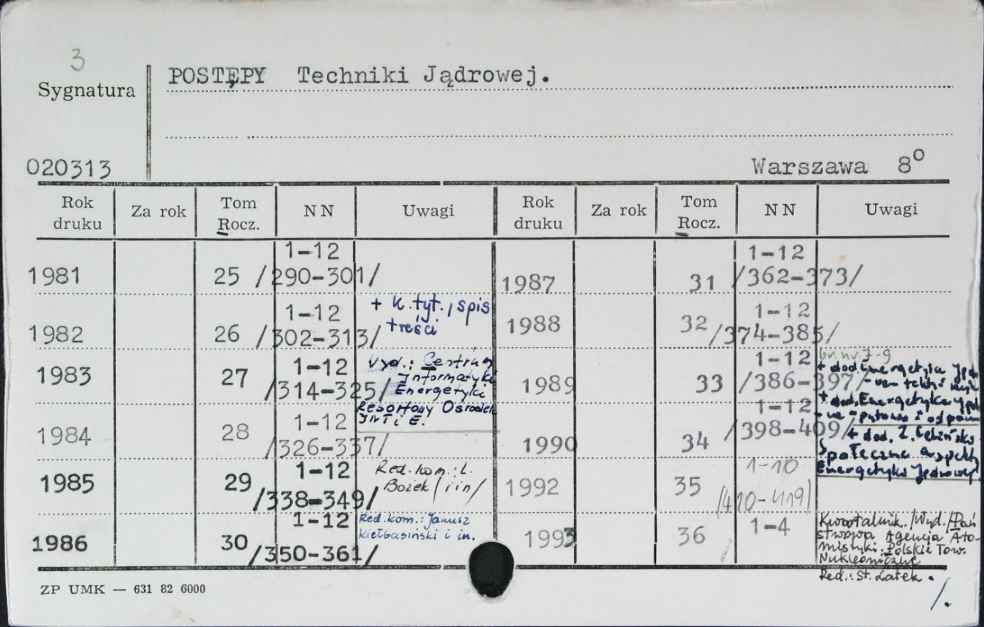 3
Sygnatura
POSTĘPY Techniki Jądrowej.
020313
Warszawa 8°
Rok druku Za rok Tom Rocz. NN Uwagi Rok druku Za rok Tom Rocz. NN Uwagi
1981 25 1-12 /290-301/
1982 26 1-12 /302-313/ + K. tyt., spis
treści
1983 27 1-12 /314-325/ Wyd.: Centrum
Informatyki
Energetyki
Resortowy Ośrodek
INTiE.
1984 28 1-12 /326-337/
1985 29 1-12 /338-349/ Red. kom.: L.
Bożek /i in/
1986 30 1-12 /350-361/ Red. kom.: Janusz
Kiełbasiński i in.
1987 31 1-12 /362-373/
1988 32 1-12 /374-385/
1989 33 1-12 /386-397/ br. nr. 7-9
+ dod. Energetyka Jądr
+ dod. Energetyka
1990 34 1-12 /398-409/
+ dod. Z. Celiński
Społeczne aspekty
Energetyki Jądrowej
1992 35 1-10 /410-419/
1993 36 1-4 Kwartalnik. /Wyd./ Pań
stwowa Agencja Ato-
mistyki. Polskie Tow.
Nukleoniczne
Red.: St. Latek.
/.
ZP UMK — 631 82 6000